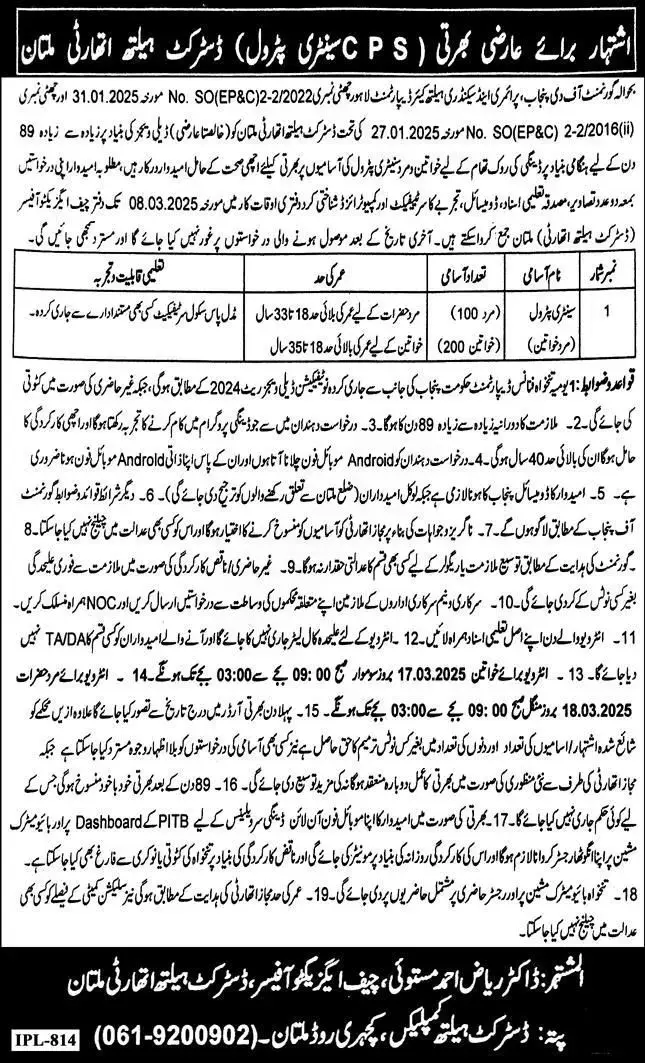 اشتہار برائے عارضی بھرتی (CPS سینٹری پٹرول) ڈسٹرکٹ ہیلتھ اتھارٹی ملتان
بحوالہ گورنمنٹ آف دی پنجاب، پرائمری اینڈ سیکنڈری ہیلتھ کیئر ڈیپارٹمنٹ لاہور چٹھی نمبری No. SO(EP&C)2-2/2022 مورخہ 31.01.2025 اور چٹھی نمبری
No. SO(EP&C) 2-2/2016(ii) مورخہ 27.01.2025 کی تحت ڈسٹرکٹ ہیلتھ اتھارٹی ملتان کو (خالصتاً عارضی) ڈیلی ویجز کی بنیاد پر زیادہ سے زیادہ 89
دن کے لیے ہنگامی بنیاد پر ڈینگی کی روک تھام کے لیے خواتین و مرد سینٹری پٹرول کی آسامیوں پر بھرتی کیلئے اچھی صحت کے حامل امیدوار درکار ہیں، مطلوبہ امیدوار اپنی درخواستیں
بمعہ دو عدد تصاویر، مصدقہ تعلیمی اسناد، ڈومیسائل، تجربے کا سرٹیفکیٹ اور کمپیوٹرائزڈ شناختی کارڈ دفتری اوقات کار میں مورخہ 08.03.2025 تک دفتر چیف ایگزیکٹو آفیسر
(ڈسٹرکٹ ہیلتھ اتھارٹی) ملتان جمع کروا سکتے ہیں۔ آخری تاریخ کے بعد موصول ہونے والی درخواستوں پر غور نہیں کیا جائے گا اور مسترد سمجھی جائیں گی۔
نمبر شمار نام آسامی تعداد آسامی عمر کی حد تعلیمی قابلیت و تجربہ
1 سینٹری پٹرول (مرد 100) مرد حضرات کے لیے عمر کی بالائی حد 18 تا 33 سال مڈل پاس سکول سرٹیفکیٹ کسی بھی مستند ادارے سے جاری کردہ۔
(مرد خواتین) (خواتین 200) خواتین کے لیے عمر کی بالائی حد 18 تا 35 سال
قواعد و ضوابط: 1 یومیہ تنخواہ فنانس ڈیپارٹمنٹ حکومت پنجاب کی جانب سے جاری کردہ نوٹیفکیشن ڈیلی ویجز ریٹ 2024 کے مطابق ہوگی، جبکہ غیر حاضری کی صورت میں کٹوتی
کی جائے گی۔ 2۔ ملازمت کا دورانیہ زیادہ سے زیادہ 89 دن کا ہوگا۔ 3۔ درخواست دہندان میں سے جو ڈینگی پروگرام میں کام کرنے کا تجربہ رکھتا ہوگا اور اچھی کارکردگی کا
حامل ہوگا ان کی بالائی حد 40 سال ہوگی۔ 4۔ درخواست دہندان کو Android موبائل فون چلانا آتا ہو اور ان کے پاس اپنا ذاتی Android موبائل فون ہونا ضروری
ہے۔ 5۔ امیدوار کا ڈومیسائل پنجاب کا ہونا لازمی ہے جبکہ لوکل امیدواران (ضلع ملتان سے تعلق رکھنے والوں کو ترجیح دی جائے گی)۔ 6۔ دیگر شرائط قوائد و ضوابط گورنمنٹ
آف پنجاب کے مطابق لاگو ہوں گے۔ 7۔ ناگزیر وجوہات کی بناء پر مجاز اتھارٹی کو آسامیوں کو منسوخ کرنے کا اختیار ہوگا اور اس کو کسی بھی عدالت میں چیلنج نہیں کیا جا سکتا۔ 8
۔ گورنمنٹ کی ہدایت کے مطابق توسیع ملازمت یا ریگولر کے لیے کسی بھی قسم کا عدالتی حقدار نہ ہوگا۔ 9۔ غیر حاضری/ناقص کارکردگی کی صورت میں ملازمت سے فوری علیحدگی
بغیر کسی نوٹس کے کر دی جائے گی۔ 10۔ سرکاری و نیم سرکاری اداروں کے ملازمین اپنے متعلقہ محکموں کی وساطت سے درخواستیں ارسال کریں اور NOC ہمراہ منسلک کریں۔
11۔ انٹرویو والے دن اپنے اصل تعلیمی اسناد ہمراہ لائیں۔ 12۔ انٹرویو کے لئے علیحدہ کال لیٹر جاری نہیں کیا جائے گا اور آنے والے امیدواران کو کسی قسم کا TA/DA نہیں
دیا جائے گا۔ 13۔ انٹرویو برائے خواتین 17.03.2025 بروز سوموار صبح 09:00 بجے سے 03:00 بجے تک ہونگے۔ 14۔ انٹرویو برائے مرد حضرات
18.03.2025 بروز منگل صبح 09:00 بجے سے 03:00 بجے تک ہونگے۔ 15۔ پہلا دن بھرتی آرڈر میں درج تاریخ سے تصور کیا جائے گا علاوہ ازیں محکمے کو
شائع شدہ اشتہار/اسامیوں کی تعداد اور دنوں کی تعداد میں بغیر کسی نوٹس ترمیم کا حق حاصل ہے نیز کسی بھی آسامی کی درخواستوں کو بلا اظہار وجوہ مسترد کیا جا سکتا ہے جبکہ
مجاز اتھارٹی کی طرف سے نئی منظوری کی صورت میں بھرتی کا عمل دوبارہ منعقد ہوگا نہ کی مزید توسیع دی جائے گی۔ 16۔ 89 دن کے بعد بھرتی خود بخود منسوخ ہوگی جس کے
لیے کوئی حکم جاری نہیں کیا جائے گا۔ 17۔ بھرتی کی صورت میں امیدوار کا اپنا موبائل فون آن لائن ڈینگی سرویلینس کے لیے PITB کے Dashboard پر اور بائیومیٹرک
مشین پر اپنا انگوٹھا رجسٹر کروانا لازم ہوگا اور اس کی کارکردگی روزانہ کی بنیاد پر مونیٹر کی جائے گی اور ناقص کارکردگی کی بنیاد پر تنخواہ کی کٹوتی یا نوکری سے فارغ بھی کیا جا سکتا ہے۔
18۔ تنخواہ بائیومیٹرک مشین پر اور رجسٹر حاضری پر مشتمل حاضریوں پر دی جائے گی۔ 19۔ عمر کی حد مجاز اتھارٹی کی ہدایت کے مطابق ہوگی نیز سلیکشن کمیٹی کے فیصلے کو کسی بھی
عدالت میں چیلنج نہیں کیا جا سکتا۔
المشتہر: ڈاکٹر ریاض احمد مستوئی، چیف ایگزیکٹو آفیسر، ڈسٹرکٹ ہیلتھ اتھارٹی ملتان
پتہ: ڈسٹرکٹ ہیلتھ کمپلیکس، کچہری روڈ ملتان۔ (061-9200902)
IPL-814